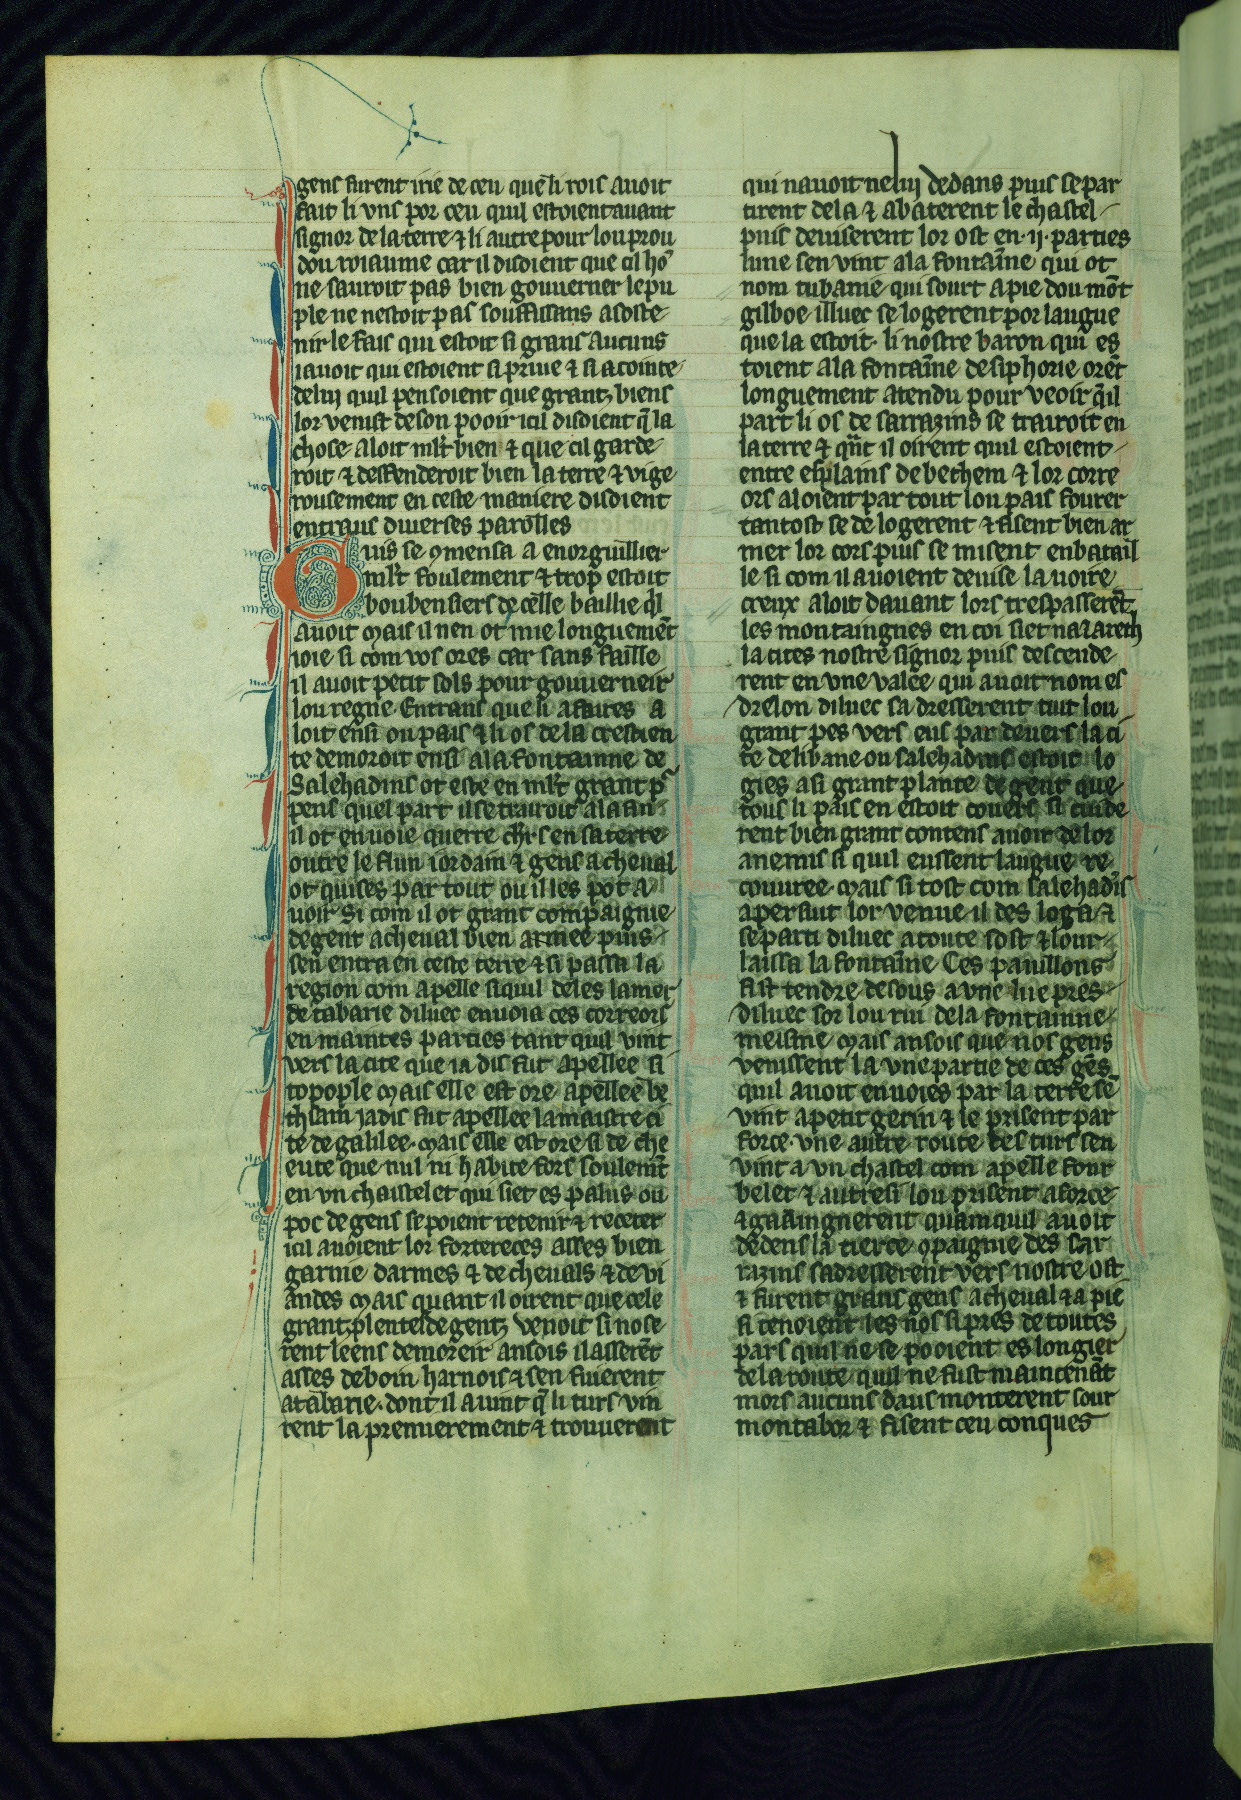 gens furent irie de ceu que li rois auoit
fait li vns por ceu quil estoient auant
signor de la terre ⁊ li autre pour lou prou
dou roiaume car il disoient que cil hō
ne sauroit pas bien gouuerner le pu
ple ne nestoit pas souffissans a soste
nir le fais qui estoit si grans aucuns
iauoit qui estoient si priue ⁊ si acointe
de luy quil pensoient que grantz biens
lor venist de son pooir icil disoient q̄ la
chose aloit ml't bien ⁊ que cil garde
roit ⁊ deffenderoit bien la terre ⁊ vige
rousement en ceste maniere disoient
entraus diuerses parolles
Guis se ꝯmensa a enorguillier
ml't foulement ⁊ trop estoit
boubensiers de celle baillie q̄l
auoit mais il nen ot mie longuemēt
ioie si com vos ores car sans faille
il auoit petit sols pour gouuerneir
lou regne. Entrans que li afaires a
loit ensi ou pais ⁊ li os de la crestien
te demoroit ensi a la fontainne de
Salehadins ot este en ml't grant p̄
pens quel part il se trairoit a la fin
il ot enuoie querre ch'rs en sa terre
outre le flun iordain ⁊ gens a cheual
ot quises par tout ou il les pot a
uoir Si com il ot grant compaignie
de gent a cheual bien armee puis
sen entra en ceste terre ⁊ si passa la
region com apelle si quil deles la mer
de tabarie diluec enuoia ces correors
en maintes parties tant quil vint
vers la cite que ia dis fut apellee si
topople mais elle est ore apellee be
thsam jadis fut apellee la maistre ci
te de galilee. mais elle est ore si de che
eute que nul ni habite fors soulemēt
en vn chaistelet qui siet es palus ou
poc de gens se poient retenir ⁊ receter
icil auoient lor fortereces asses bien
garnie darmes ⁊ de cheuals ⁊ de vi
andes mais quant il oirent que cele
grantz plentei de gentz venoit si nose
rent leens demoreir ansois il asserēt
asses de boin harnois ⁊ sen fuierent
a tabarie. dont il auint q̄ li turs vin
rent la premierement ⁊ trouuerent
qui nauoit neluy dedans puis se par
tirent de la ⁊ abaterent le chastel
puis deuiserent lor ost en .ij. parties
lune sen vint a la fontainne qui ot
nom tubanie qui sourt a pie dou mōt
gilboe illuec se logerent por laugue
que la estoit. li nostre baron qui es
toient a la fontainne de siphorie orēt
longuement atendu pour veoir q̄il
part li os de sarrazins se trairoit en
la terre ⁊ qn̄t il oirent quil estoient
entre es plains de bethem ⁊ lor corre
ors aloient par tout lou pais fourer
tantost se de logerent ⁊ fisent bien ar
mer lor cors puis se misent en batail
le si com il auoient deuise la uoire
creux aloit dauant lors trespasserētz
les montaingnes en coi siet nazareth
la cites nostre signor puis descende
rent en vne valee qui auoit nom es
drelon diluec sa dresserent tuit lou
grant pes vers eus par deuers la ci
te de libane ou salehadins estoit lo
gies a si grant plante de gent que
tous li pais en estoit couers si cuide
rent bien grant contens auoir de lor
anemis si quil eussent laugue re
couuree. mais si tost com salehadīs
apersut lor venue il des loga ⁊
se parti diluec a toute sost ⁊ lour
laissa la fontainne Ces pauillons
fist tendre desous a vne liie pres
diluec sor lou rui de la fontainne
meisme mais ansois que nos gens
venissent la vne partie de ces gēs
quil auoit enuoies par la terre se
vint a petit gerin ⁊ le prisent par
force. vne autre route des turs sen
vint a vn chastel com apelle four
belet ⁊ autresi lou prisent a force
⁊ gaaingnerent quamquil auoit
dedens la tierce ꝯpaignie des sar
razins sadresserent vers nostre ost
⁊ furent grans gens a cheual ⁊ a pie
si tenoient les nos si pres de toutes
pars quil ne se pooient eslongier
de la route quil ne fust maintenāt
mors aucuns daus monterent sour
montabor ⁊ fisent ceu conques